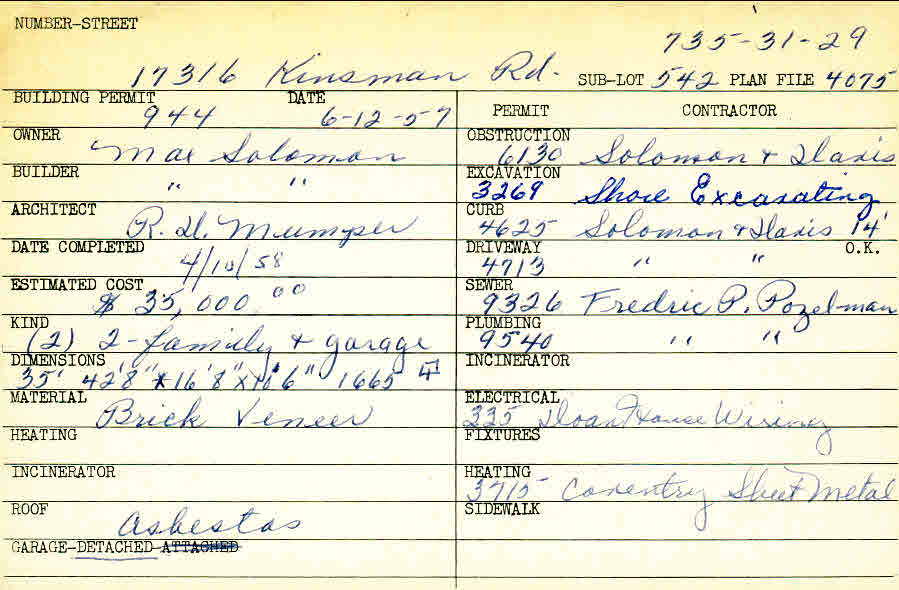 NUMBER-STREET
735-31-29
17316 Kinsman Rd. SUB-LOT 542 PLAN FILE 4075
BUILDING PERMIT DATE
944 6-12-57
OWNER
Max Solomon
BUILDER
" "
ARCHITECT
R. D. Mumper
DATE COMPLETED
4/10/58
ESTIMATED COST
$ 35,000.00
KIND
(2) 2-family & garage
DIMENSIONS
35' 42'8" x 16'8" x 10'6" 1665
MATERIAL
Brick Veneer
HEATING
INCINERATOR
ROOF
Asbestos
GARAGE-DETACHED-ATTACHED
PERMIT CONTRACTOR
OBSTRUCTION
6130 Solomon & Davis
EXCAVATION
3269 Shore Excavating
CURB
4625 Solomon & Davis 14'
DRIVEWAY O.K.
4713 " "
SEWER
9326 Fredric P. Pozelman
PLUMBING
9540 " "
INCINERATOR
ELECTRICAL
335 House Wiring
FIXTURES
HEATING
3715 Coventry Sheet Metal
SIDEWALK